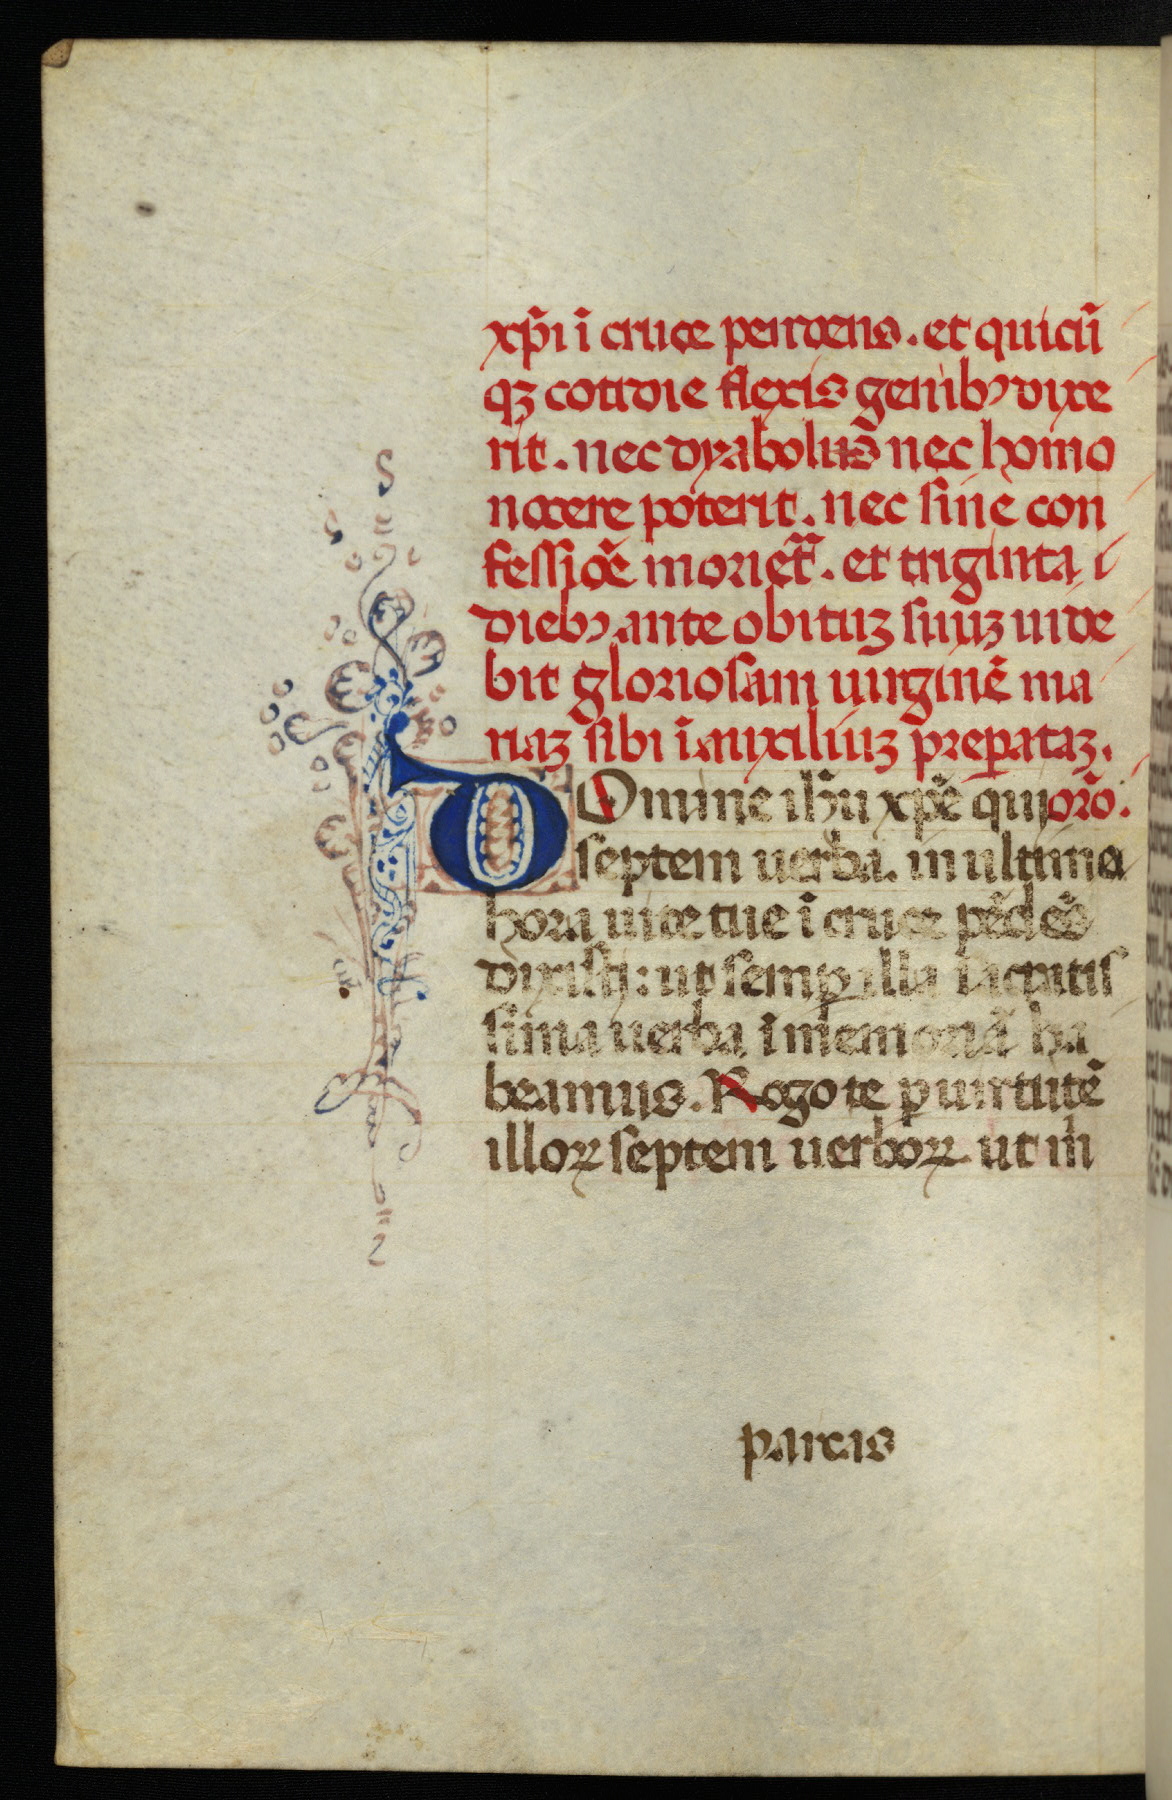 xp̃i ĩ cruce pendens. et quicũ
qꝫ cottidie flexis genibꝰ dixe
rit. nec dyabolus nec homo
nocere poterit. nec sine con
fessiõe moriet̃. et triginta
diebꝰ ante obituꝫ suuꝫ uide
bit gloriosam uirginẽ ma
riaꝫ sibi ĩ auxiliuꝫ preparataꝫ.
Domine ih̃u xp̃e qui or̃o.
septem uerba. in ultima
hora uite tue ĩ cruce pẽdẽs
dixisti: ut semꝑ illa sacratis
sima uerba ĩ memoriã ha
beamus. Rogo te ꝑ uirtutẽ
illoꝝ septem uerboꝝ ut m̃
parcas